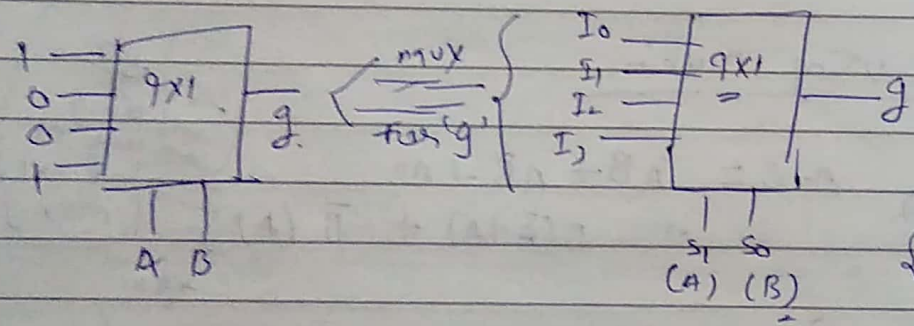 1
0
0
1
4x1
g.
A B
mux
for 'g'
I0
I1
I2
I3
4x1
g
S1 S0
(A) (B)